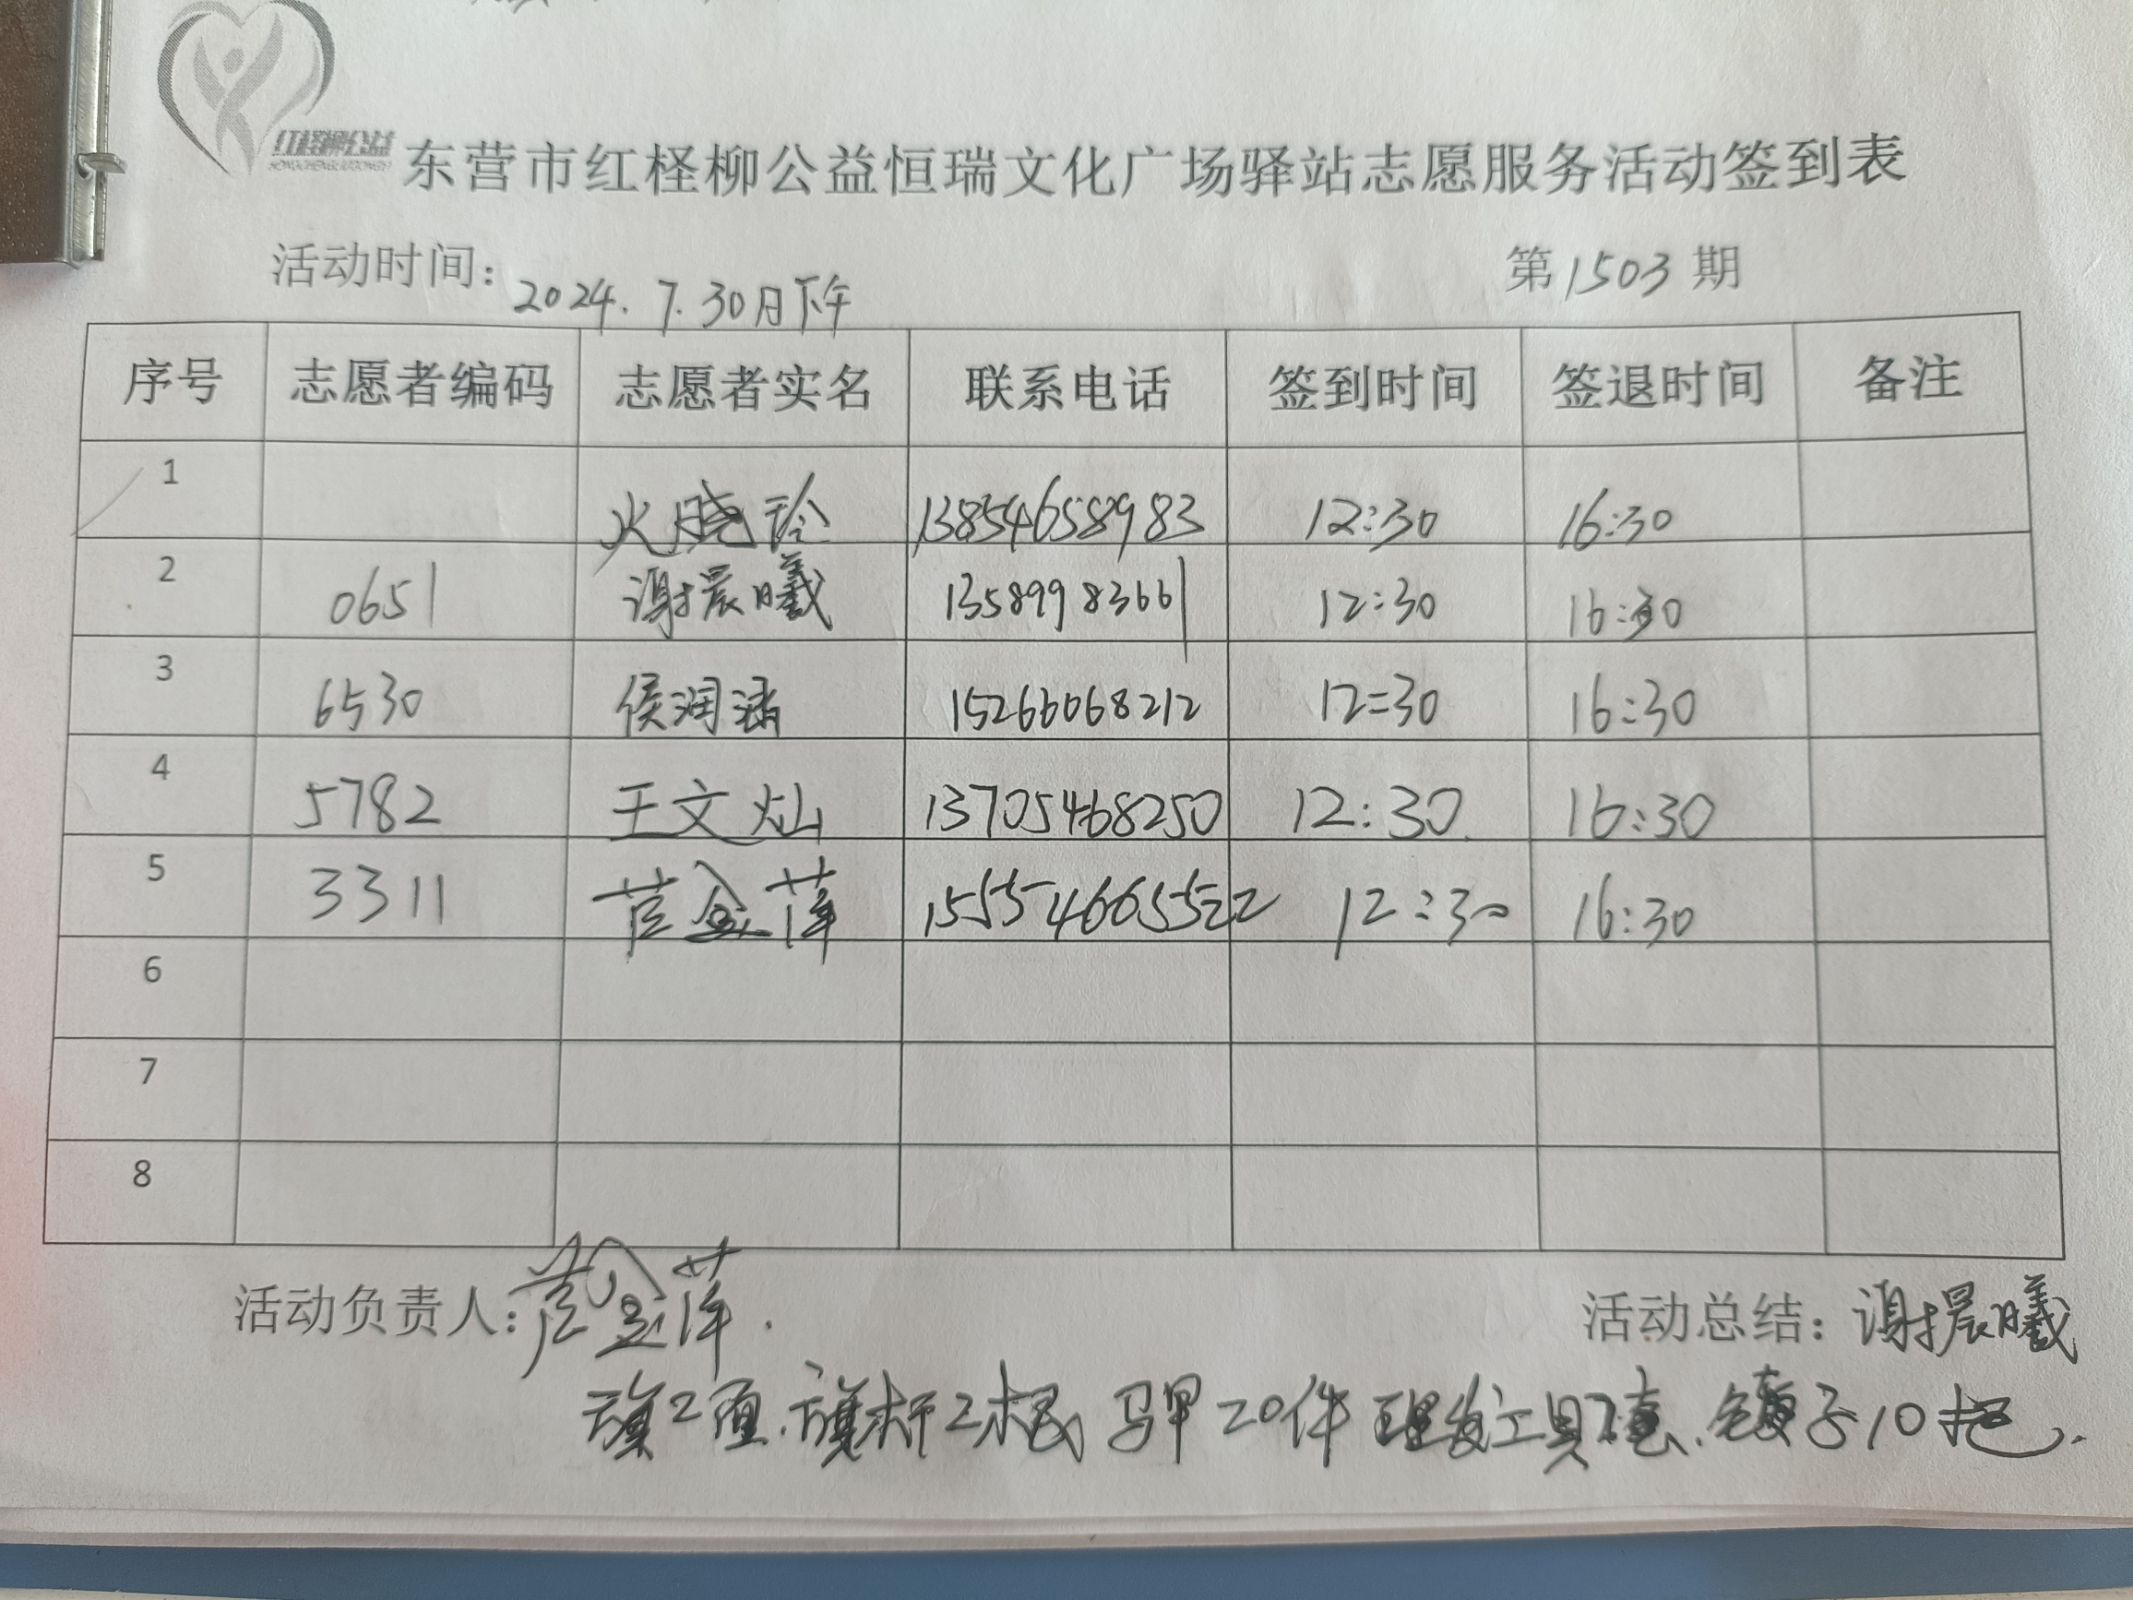 红柽柳公益
东营市红柽柳公益恒瑞文化广场驿站志愿服务活动签到表
活动时间：2024.7.30日下午 第1503期
序号 志愿者编码 志愿者实名 联系电话 签到时间 签退时间 备注
1 火晓玲 13854658983 12:30 16:30
2 0651 谢晨曦 13589983661 12:30 16:30
3 6530 侯润涵 15266068212 12:30 16:30
4 5782 王文灿 13705468250 12:30 16:30
5 3311 金萍 15554665522 12:30 16:30
6
7
8
活动负责人：金萍. 活动总结：谢晨曦
旗2面.旗杆2根 马甲20件 理发工具 子10把.